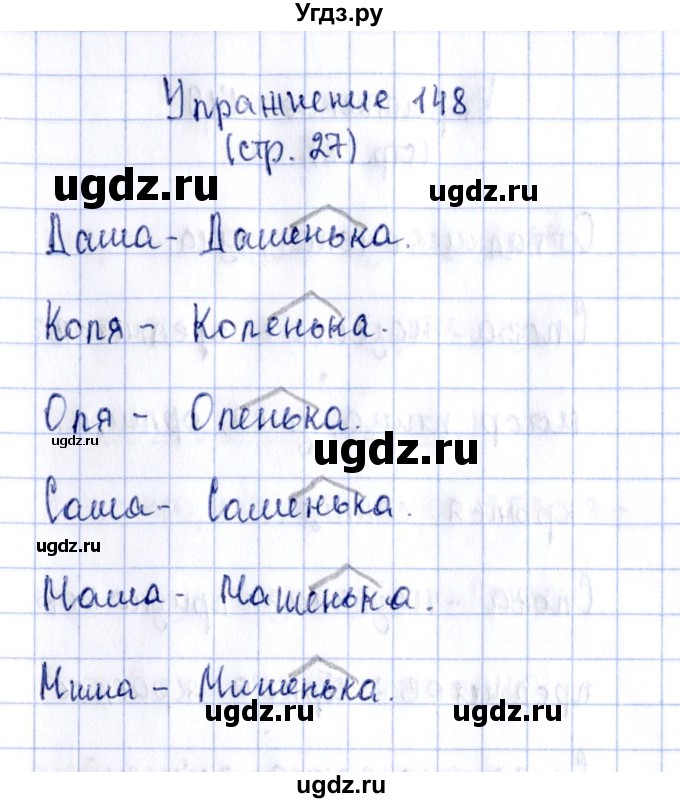 Угдз.ру
Упражнение 148
(стр. 27)
ugdz.ru ugdz.ru
Даша - Дашенька.
Коля - Коленька.
Оля - Оленька.
ugdz.ru
ugdz.ru
Саша - Сашенька.
ugdz.ru
Маша - Машенька.
Миша - Мишенька.
ugdz.ru ugdz.ru
ugdz.ru